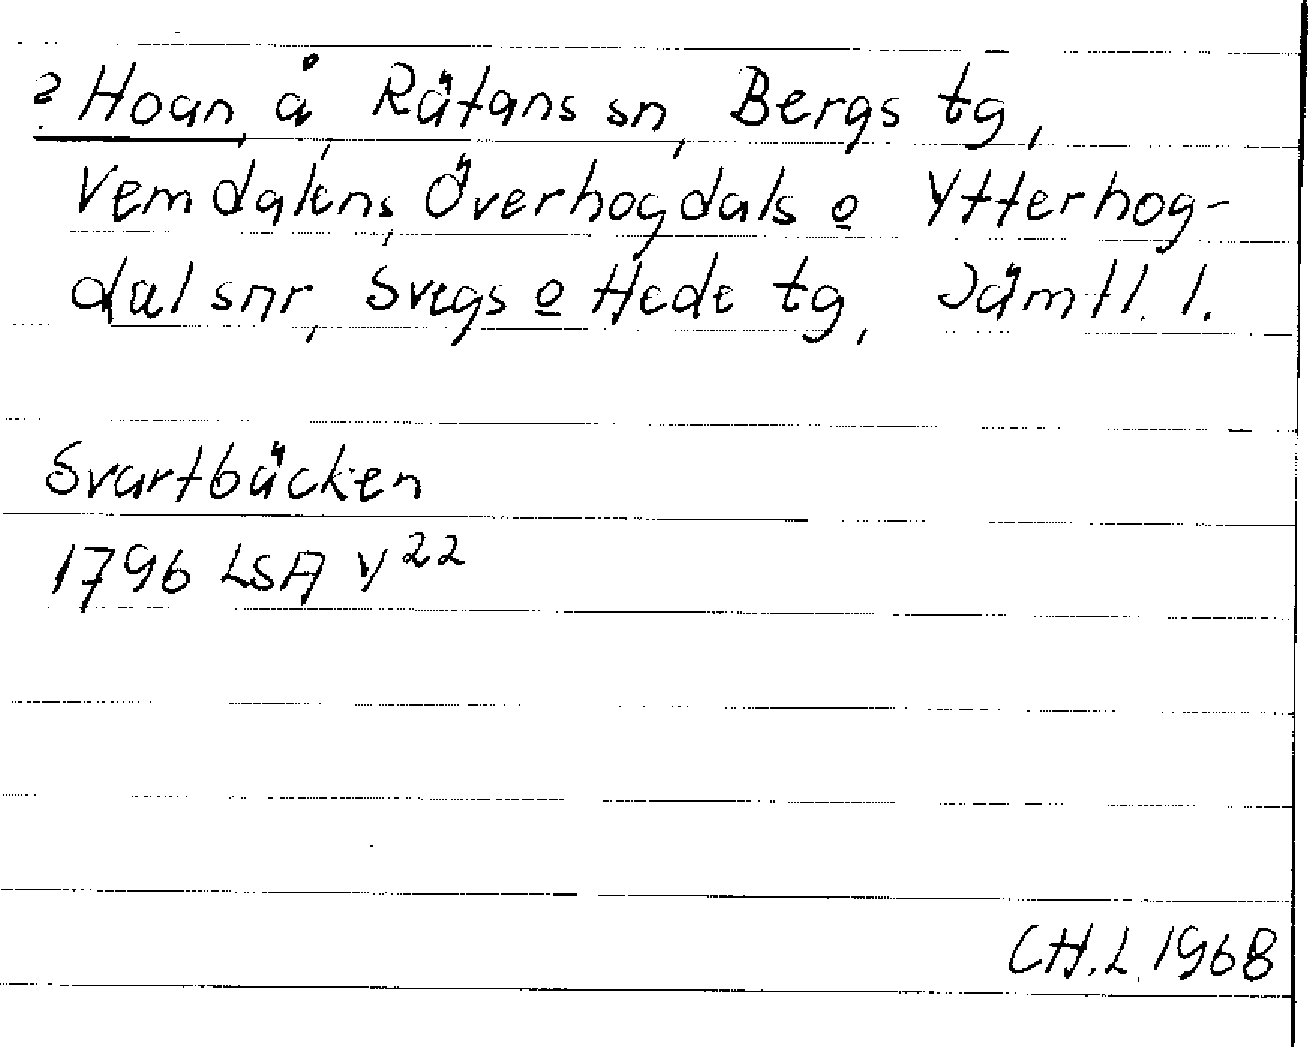 ? Hoan, å, Rätans sn, Bergs tg,
Vemdalens, Överhogdals o Ytterhog-
dal snr, Svegs o Hede tg, Jämtl. l.
Svartbäcken
1796 LSA V22
CH.L 1968